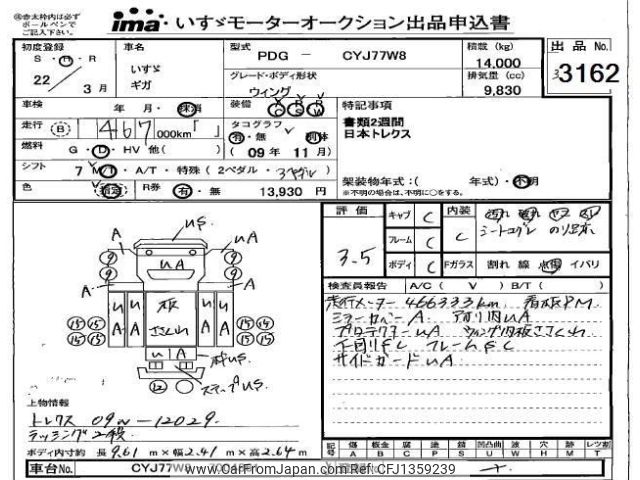 ㊟赤太枠内は必ず
ボールペンで
ご記入下さい。
ima いすゞモーターオークション出品申込書
初度登録
S・H・R
22 3 月
車名
いすゞ
ギガ
型式
PDG － CYJ77W8
グレード・ボディ形状
ウィング
積載 (kg)
14,000
排気量 (cc)
9,830
出品 No.
3162
車検 年 月・抹消
装備
走行 (B) 467 000km「 」
タコグラフ
有・無 別体
( 09 年 11 月)
燃料 G・D・HV 他( )
シフト 7 M/T・A/T・特殊 ( 2ペダル・3ペダル )
色 指定 R券 有・無 13,930 円
特記事項
書類2週間
日本トレクス
架装物年式:( 年式)・不明
※不明の場合は、不明に○をする。
評価
3.5
キャブ C
フレーム C
ボディ C
内装 C
Fガラス 割れ 線 点傷 イバリ
検査員報告 A/C ( V ) B/T ( )
走行メーター 466333km 看板PM
ミラーカバーA アオリ内UA
プロテクターUA ウィング内板ささくれ
下回りFC フレームFC
サイドガードUA
A US
UA
⑨ ⑨
⑨ ⑨
A A
UA UA
板
ささくれ
⑮ ⑮ ⑮ ⑮
⑮ ⑮ ⑮ ⑮
U A
⑫ ステップUS
上物情報
トレクス 09N-12029
ラッシング2段
ボディ内寸約 長 9.61 m×幅 2.41 m×高 2.64 m
記号 傷 板金 腐 塗 錆 凹凸曲 波 穴 跡 レンズ割
A B C P S U W H M T
車台No. CYJ77W
www.CarFromJapan.com Ref:CFJ1359239